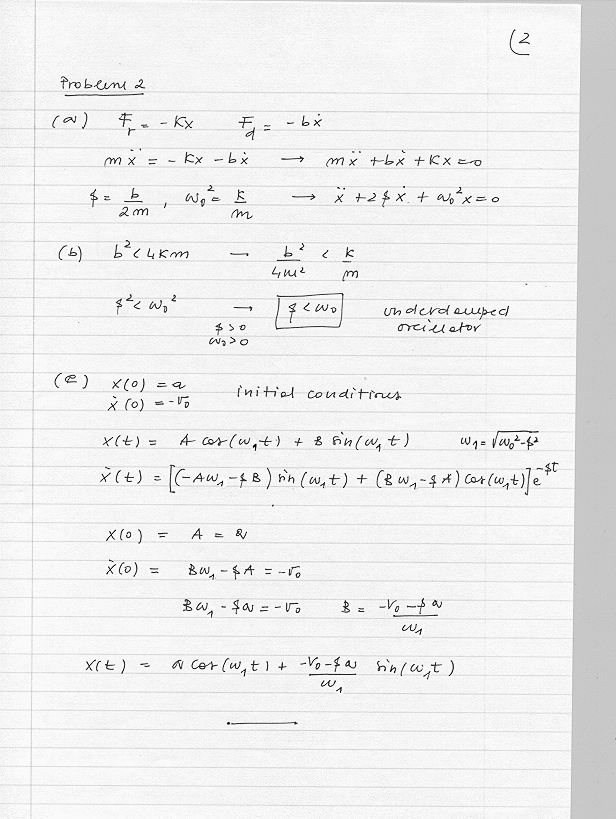 (2
Problem 2
(a) F_r = -Kx F_d = -bẋ
mẍ = -Kx - bẋ → mẍ + bẋ + Kx = 0
β = b/2m , ω₀² = K/m → ẍ + 2βẋ + ω₀²x = 0
(b) b² < 4Km — b²/4m² < K/m
β² < ω₀² → β < ω₀ underdamped
β > 0 oscillator
ω₀ > 0
(c) x(0) = a
ẋ(0) = -v₀ initial conditions
x(t) = A cos(ω₁t) + B sin(ω₁t) ω₁ = √(ω₀²-β²)
ẋ(t) = [(-Aω₁ - βB) sin(ω₁t) + (Bω₁ - βA) cos(ω₁t)] e^(-βt)
x(0) = A = a
ẋ(0) = Bω₁ - βA = -v₀
Bω₁ - βa = -v₀ B = (-v₀ - βa)/ω₁
x(t) = a cos(ω₁t) + (-v₀ - βa)/ω₁ sin(ω₁t)